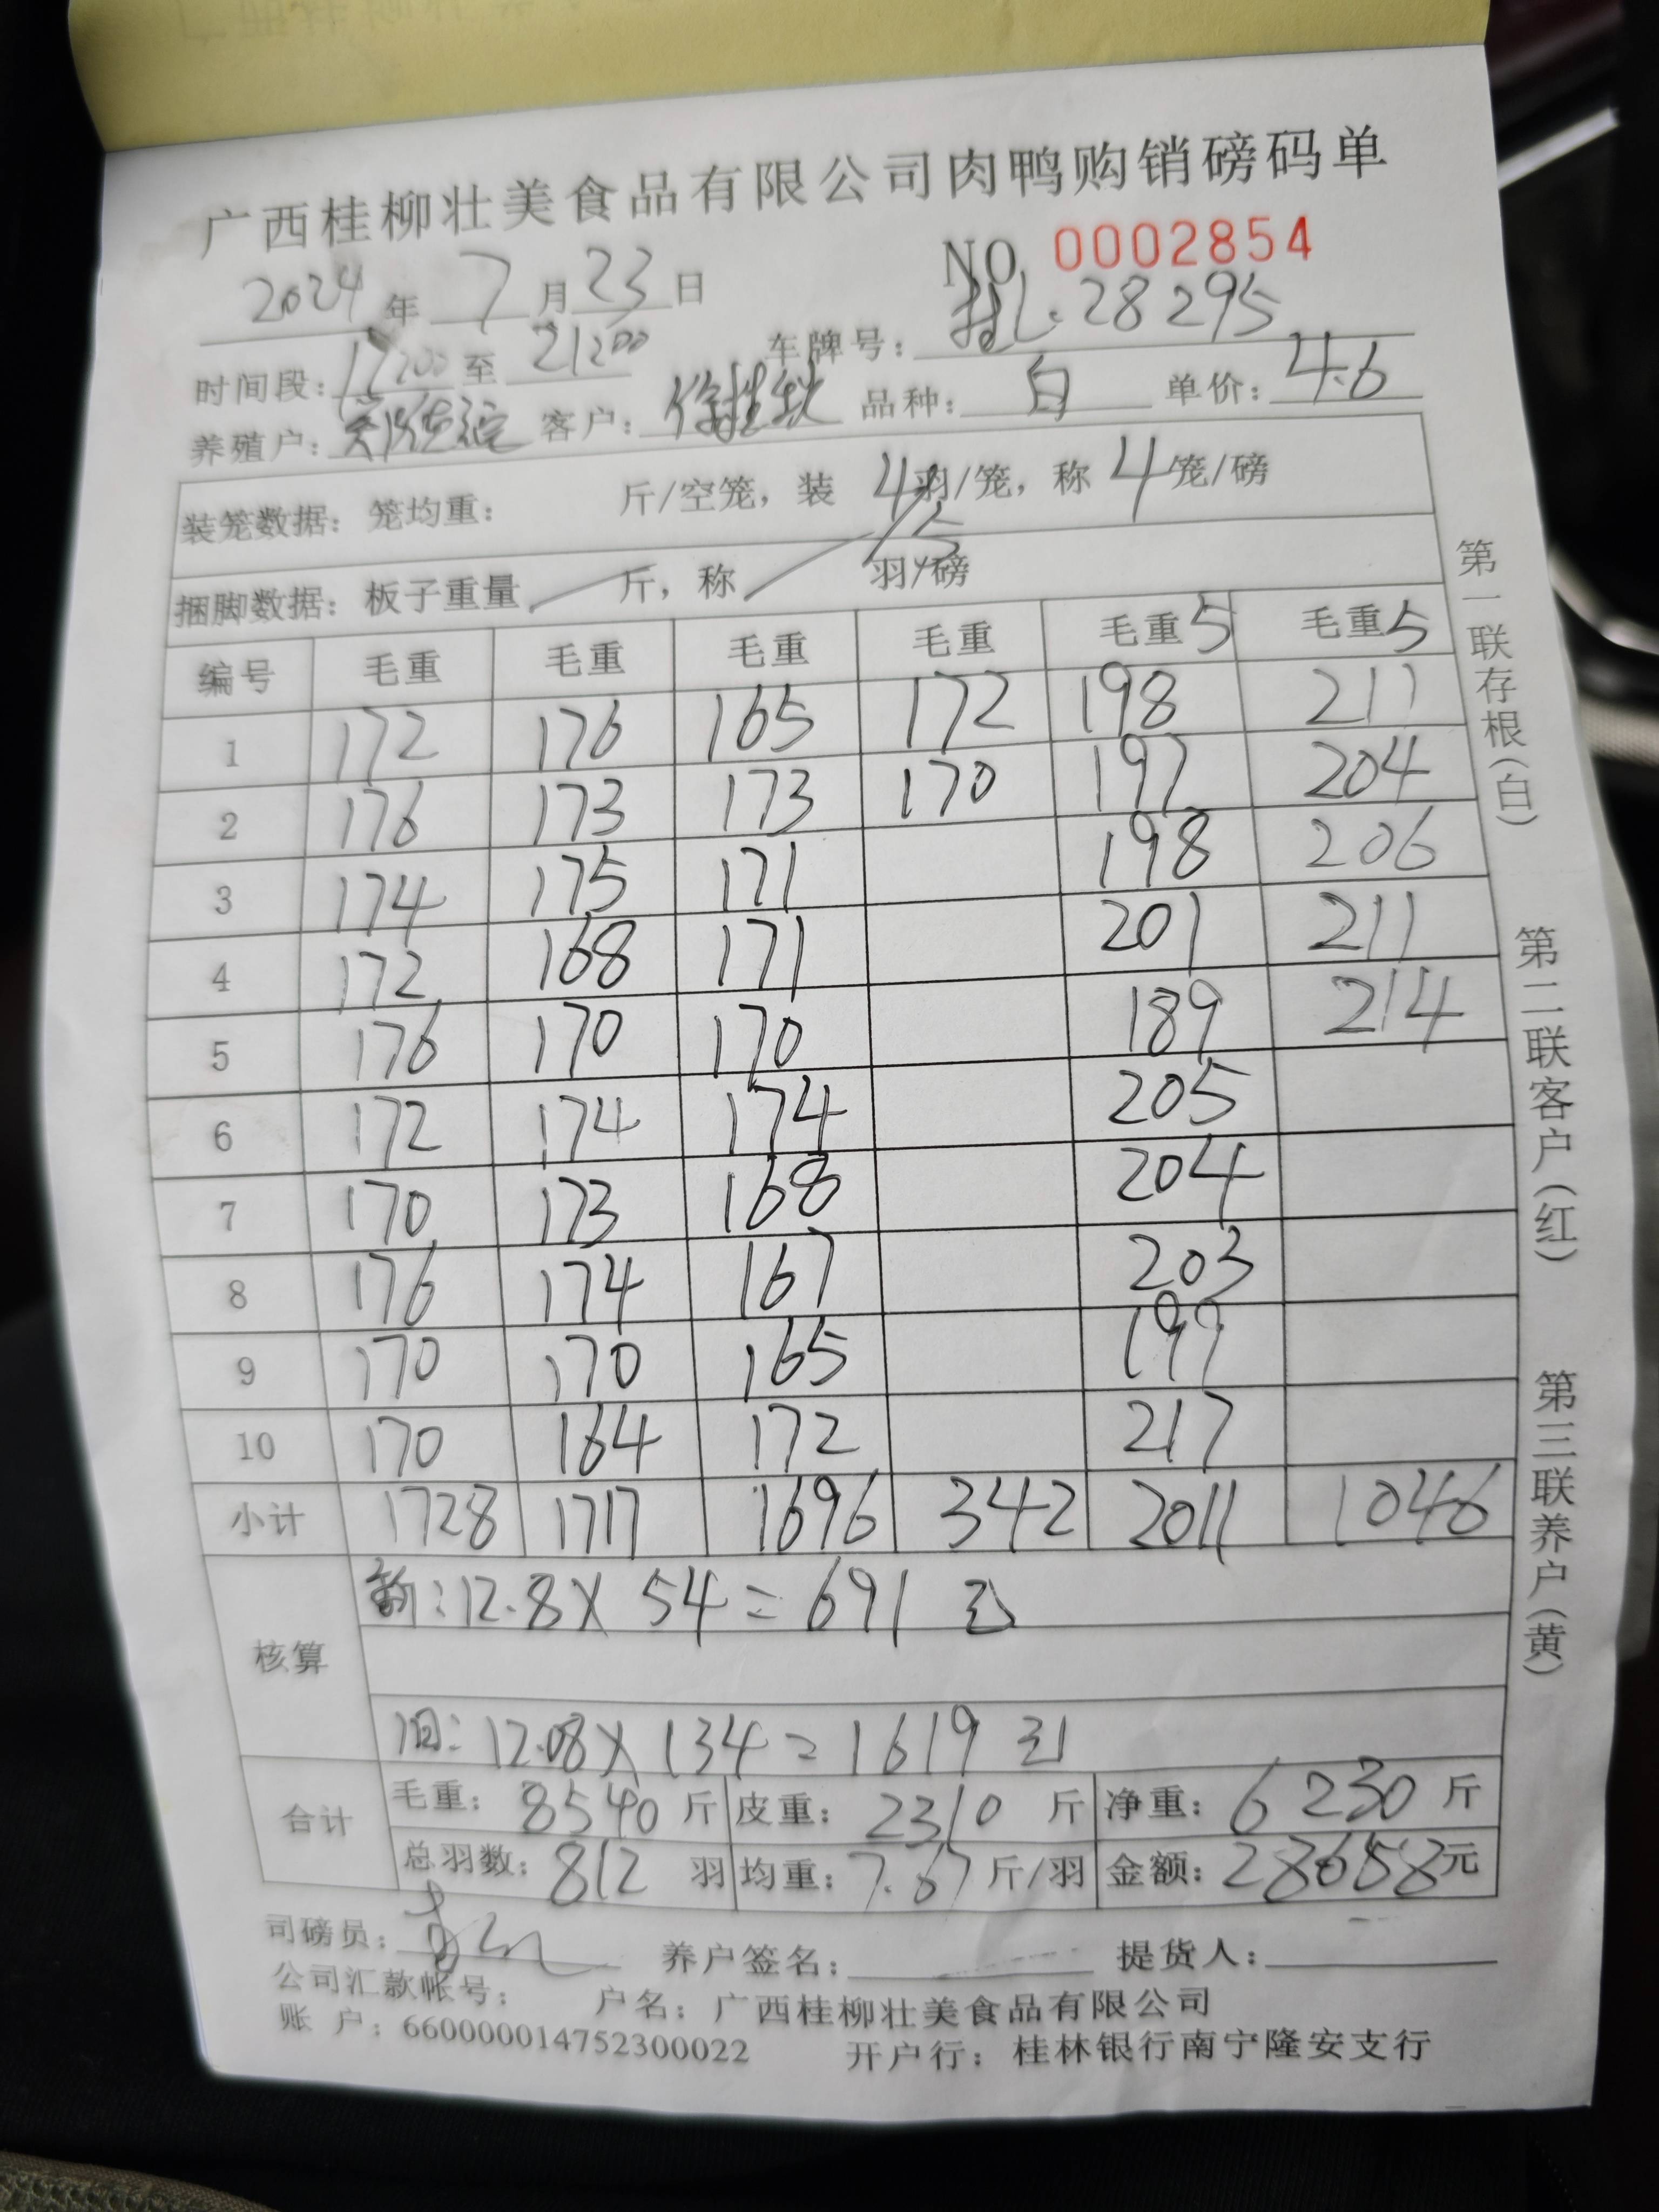 广西桂柳壮美食品有限公司肉鸭购销磅码单
NO 0002854
2024年 7月23日
时间段: 至 21:00 车牌号: 28295
养殖户: 客户: 徐桂 品种: 白 单价: 4.6
装笼数据: 笼均重: 斤/空笼, 装 4/5 羽/笼, 称 4 笼/磅
捆脚数据: 板子重量 / 斤, 称 / 羽/磅
编号 毛重 毛重 毛重 毛重 毛重5 毛重5
1 172 176 165 172 198 211
2 176 173 173 170 197 204
3 174 175 171 198 206
4 172 168 171 201 211
5 176 170 170 189 214
6 172 174 174 205
7 170 173 168 204
8 176 174 167 203
9 170 170 165 199
10 170 164 172 217
小计 1728 1717 1696 342 2011 1046
核算
新: 12.8 X 54 = 691
旧: 12.08 X 134 = 1619
合计
毛重: 8540 斤 皮重: 2310 斤 净重: 6230 斤
总羽数: 812 羽 均重: 7.67 斤/羽 金额: 28658元
司磅员: 养户签名: 提货人:
公司汇款帐号: 户名: 广西桂柳壮美食品有限公司
账 户: 660000014752300022 开户行: 桂林银行南宁隆安支行
第一联存根(白) 第二联客户(红) 第三联养户(黄)